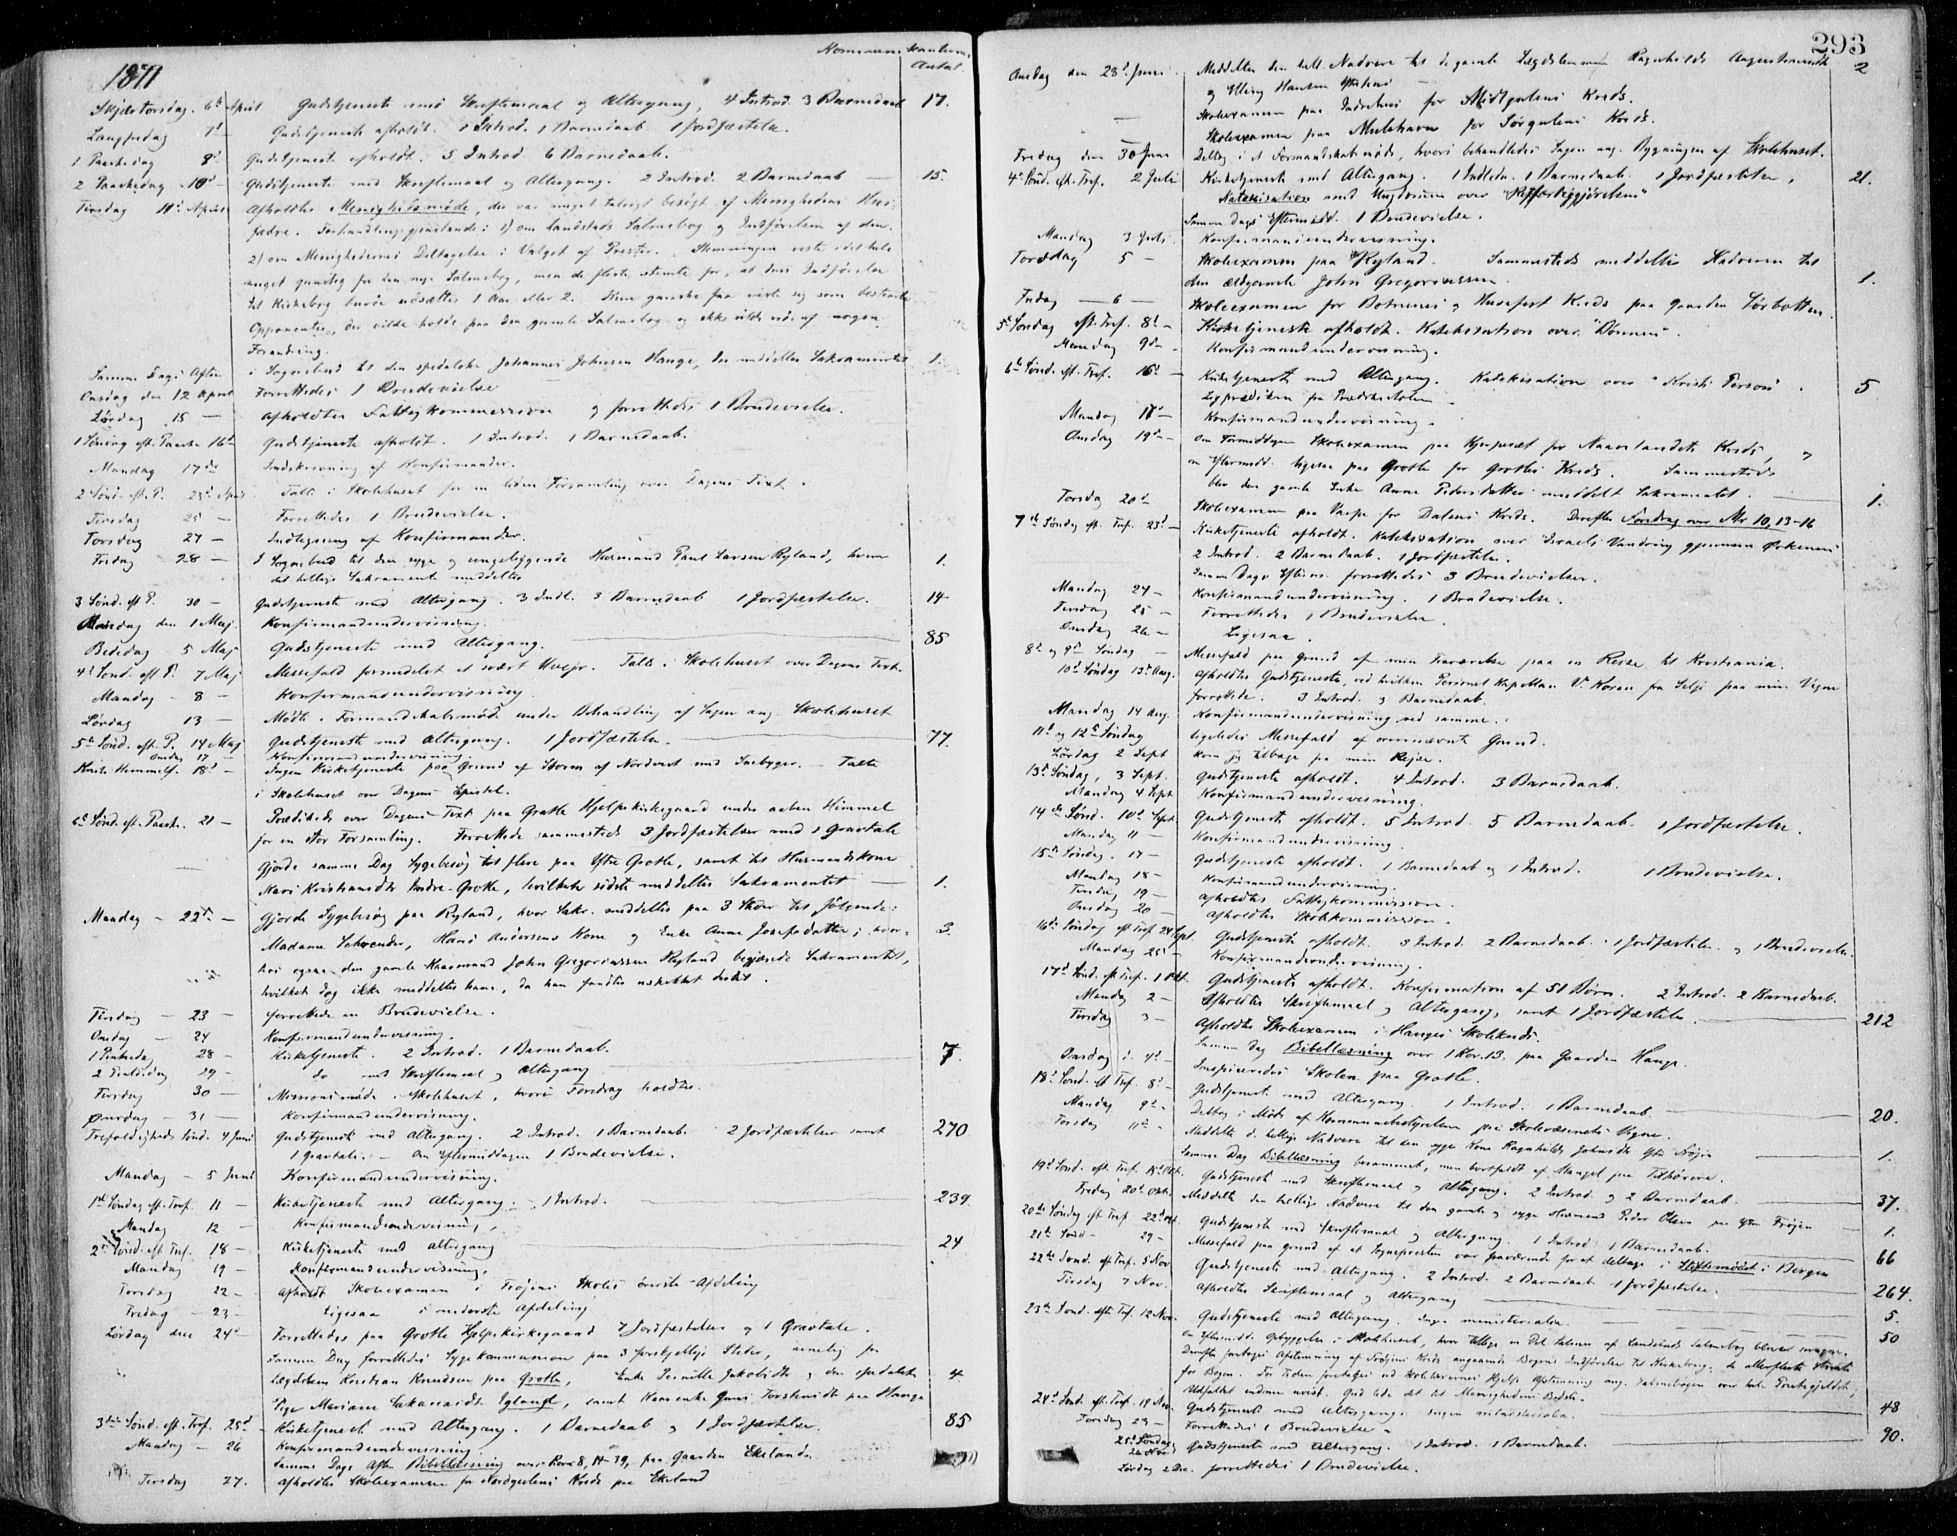 1871
Kommunikanternes Antal
Skjærtorsdag 6te April Gudstjeneste med Skriftemaal og Altergang, 4 Introd. 3 Barnedaab 17.
Langfredag 7d — Gudstjeneste afholdt. 1 Introd. 1 Barnedaab 1 Jordfæstelse.
1 Paaskedag 8d Gudstjeneste afholdt. 5 Introd. 6 Barnedaab.
2 Paaskedag 10d — Gudstjeneste med Skriftemaal og Altergang. 2 Introd. 2 Barnedaab — 15.
Tirsdag 11te April Afholdtes Menighedsmøde, der var meget talrigt besøgt af Menighedens Hus-
fædre. Forhandlingsgjenstande: 1) om Landstads Salmebog og Indførelsen af den.
2) om Menighedernes Deltagelse i Valget af Prester. Stemningen viste sig
meget gunstig for den nye Salmebog, men de fleste stemte for, at dens Indførelse
til Kirkebog burde udsættes 1 Aar eller 2. Kun ganske faa viste sig som bestemte
Opponenter, der vilde holde paa den gamle Salmebog og ikke vilde vide af nogen
Forandring.
Samme Dags Aften i Sognebud til den spedalske Johannes Johnsen Hauge, der meddeltes Sakramentet 1.
Onsdag den 12 April Forrettedes 1 Brudevielse
Lördag 15 — Afholdtes Fattigkommission og forrettedes 1 Brudevielse.
1 Söndag eft. Paaske 16d Gudstjeneste afholdt. 1 Introd. 1 Barnedaab.
Mandag 17de Indskrivning af Konfirmander.
2 Sönd. eft. P. 23d April Talte i Skolehuset for en liden Forsamling over Dagens Text.
Tirsdag 25 — Forrettedes 1 Brudevielse.
Torsdag 27 — Indtegning af Konfirmander.
Fredag 28 — I Sognebud til den syge og sengeliggende Husmand Paul Larsen Ryland, hvem 1.
det hellige Sakramente meddeltes
3 Sönd. eft P. 30 — Gudstjeneste med Altergang. 3 Indl. 3 Barnedaab 1 Jordfæstelse. 14
Mandag den 1 Maj. Konfirmandundervisning.
Bededag 5 Maj Gudstjeneste med Altergang. 85
4d Sönd. eft P. 7 Maj Messefald formedelst et svært Uvejr. Talte i Skolehuset over Dagens Text.
Mandag — 8 — Konfirmandundervisning
Lördag 13 — Mødte i Formandskabsmøde under Behandling af Sagen ang. Skolehuset
5te Sönd. eft. P. 14 Maj Gudstjeneste med Altergang. 1 Jordfæstelse. 77.
Onsdag 17 — Konfirmandundervisning.
Kristi Himmelf. 18d — Ingen Kirketjeneste paa Grund af Storm af Nordvest med Snebyger. — Talte
i Skolehuset over Dagens Epistel.
6d Sönd. eft. Paask. 21 — Prædikede over Dagens Text paa Grotle Hjelpekirkegaard under aaben Himmel
for en stor Forsamling. Forrettede sammesteds 3 Jordfæstelser med 1 Gravtale
Gjorde samme Dag Sygebesøg hos flere paa Ytre Grotle, samt til Husmandskone
Mari Kristiansdtr Indre-Grotle, hvilken sidste meddeltes Sakramentet — 1.
Mandag — 22de — Gjorde Sygebesøg paa Ryland, hvor Sakr. meddeltes paa 3 Steder til følgende:
Madame Schrender, Hans Andersens Kone og Enke Anne Josefsdatter; hvor- 3.
hos ogsaa den gamle Kaarmand John Gregoriussen Ryland begjærede Sakramentet,
hvilket dog ikke meddeltes ham, da han fandtes uskikket dertil.
Tirsdag — 23 — forrettede en Brudevielse.
Onsdag — 24 Konfirmandundervisning.
1 Pintsedag 28 — Kirketjeneste. 2 Introd. 1 Barnedaab.
2 Pintsedag 29 — do med Skriftemaal og Altergang 7.
Tirsdag 30 — Missionsmøde i Skolehuset, hvori Foredrag holdtes.
Onsdag — 31 — Konfirmandundervisning.
Trefoldigheds Sönd. 4 Juni Gudstjeneste med Altergang. 2 Introd. 1 Barnedaab. 2 Jordfæstelser samt 270
1 Gravtale. — Om Eftermiddagen 1 Brudevielse.
Mandag — 5 Juni Konfirmandundervisning.
1ste Söndag eft. Tref. 11 — Kirketjeneste med Altergang. — 1 Introd. 239.
Mandag 12 — Konfirmandundervisning.
2d Sönd. eft Tref. 18 — Kirketjeneste med Altergang 24
Mandag 19 — Konfirmandundervisning.
Torsdag 22 — Afholdt Skoleexamen i Frøiens Skoles øverste Afdeling
Fredag — 23 — Ligesaa i nederste Afdeling
Lördag den 24d Forrettedes paa Grotle Hjelpekirkegaard 7 Jordfæstelser og 1 Gravtale.
Samme Dag forrettedes Sygekommunion paa 3 forskjellige Steder, nemlig for
Lægdslem Kristian Knudsen paa Grotle, Enke Pernille Jakobsdtr og den spedalske 4
Pige Mariane Sakariasdtr Igland, samt Kaarenke Guri Torstensdtr paa Hauge
3die Sönd. eft. Tref. 25d Kirketjeneste med Altergang. 1 Barnedaab og 1 Jordfæstelse. 85
Mandag — 26 Konfirmandundervisning.
Samme Dags Aften Bibellæsning over Rom 8, 14–39, paa Gaarden Ekeland.
Tirsdag 27. Afholdtes Skoleexamen for Nordgulens Kreds paa Ekeland
293
Onsdag den 28d Juni Meddeltes den hell. Nadvere til de gamle Lægdslemmer Ragnhilds Augustinusdtr 2
og Elling Hansen
— Skoleexamen paa Indrehus for Midtgulens Kreds.
Skoleexamen paa Mulehavn for Sørgulens Kreds.
Fredag den 30 Juni Deltog i et Formandskabsmøde, hvori behandledes Sagen ang. Bygningen af Skolehuset.
4de Sönd. eft. Tref. 2 Juli Kirketjeneste med Altergang. 1 Indledn. 1 Barnedaab. 1 Jordfæstelse, 21.
Katekisation med Ungdommen over "Retfærdiggjørelsen"
Samme Dags Eftermidd. 1 Brudevielse.
Mandag 3 Juli Konfirmandundervisning.
Torsdag 5 — Skoleexamen paa Ryland. Sammesteds meddeltes Nadveren til
den ældgamle John Gregoriussen. 1.
Fredag — 6 — Skoleexamen for Botnenes og Husefest Kreds paa Gaarden Sørbotten.
5te Söndag eft. Tref. 8d — Kirketjeneste afholdt. Katekisation over "Bønnen".
Mandag 9d — Konfirmandundervisning.
6te Sönd. eft. Tref. 16d — Kirketjeneste med Altergang. Katekisation over "Kristi Person". 5
Ligprædiken fra Prædikestolen
Mandag 17d — Konfirmandundervisning.
Onsdag 19d — Om Formiddagen Skoleexamen paa for Kreds, og
om Eftermidd. ligesaa paa Grotle for Grotles Kreds. Sammesteds
blev den gamle Enke Anne Pedersdatter meddelt Sakramentet. 1.
Torsdag 20d Skoleexamen paa for Dalens Kreds. Derefter Foredrag over Mr 10, 13–16
7de Söndag eft. Tref. 23d — Kirketjeneste afholdt. Katekisation over Israels Vandring gjennem Ørkenen
2 Introd. 2 Barnedaab. 1 Jordfæstelse.
Samme Dags Efterm. forrettedes 3 Brudevielser.
Mandag 24 — Konfirmandundervisning. 1 Brudevielse.
Tirsdag 25 — Forrettedes 1 Brudevielse.
Onsdag 26 — Ligesaa.
8de og 9de Söndag — Messefald paa Grund af min Fraværelse paa en Reise til Kristiania.
10de Söndag 13d Aug. Afholdtes Gudstjeneste, ved hvilken Personel Kapellan V. Koren fra Selje paa mine Vegne
forrettede. 3 Introd. 3 Barnedaab.
Mandag 14 Aug. Konfirmandundervisning ved samme.
11te og 12te Söndag ligeledes Messefald af ovennævnte Grund.
Lördag 2 Sept kom jeg tilbage fra min Rejse.
13de Söndag, 3 Sept. Gudstjeneste afholdt. 4 Introd. 3 Barnedaab.
Mandag 4 Sept Konfirmandundervisning.
14de Sönd. 10d Sept. Gudstjeneste afholdt. 5 Introd. 5 Barnedaab. 1 Jordfæstelse.
Mandag 11 — Konfirmandundervisning.
15de Söndag. 17 — Gudstjeneste afholdt. 1 Barnedaab og 1 Introd. 1 Brudevielse.
Mandag 18 — Konfirmandundervisning.
Tirsdag 19 — Afholdtes Fattigkommission.
Onsdag 20 — Afholdtes Skolekommission.
16de Söndag eft Tref 24 Sept. Gudstjeneste afholdt. 3 Introd. 2 Barnedaab. 1 Jordfæstelse og 1 Brudevielse.
Mandag 25 — Konfirmandundervisning.
17d Sönd. eft Tref. 1 Okt. Gudstjeneste afholdt. Konfirmation af 51 Börn. 2 Introd. 2 Barnedaab.
Mandag 2 — Afholdtes Skriftemaal og Altergang, samt 1 Jordfæstelse. 212
Tirsdag 3 — Afholdtes Skoleexamen i Hauges Skolekreds.
Samme Dag Bibellæsning over 1 Kor. 13. paa Gaarden Hauge.
Onsdag d. 4d — Inspiceredes Skolen paa Grotle.
18d Sönd. eft Tref. 8d — Gudstjeneste med Altergang. 1 Introd. 1 Barnedaab 20.
Mandag 9d — Deltog i Møde af Kommunebestyrelsen paa Skolevæsenets Vegne.
Torsdag Meddeltes d. hellige Nadvere til den syge Kone Ragnhilds Johnsdtr Ytre Frøjen 1.
Samme Dag Bibellæsning berammet, men bortfaldt af Mangel paa Tilhørere.
19d Sönd. eft. Tref. 15d Okt. Gudstjeneste med Skriftemaal og Altergang. 2 Introd. og 2 Barnedaab. 37.
Fredag 20d Okt. Meddelte den hellige Nadvere til den gamle og syge Husmand Peder Olsen paa Ytre Frøjen 1.
20de Söndag eft Tref 22d Okt. Gudstjeneste med Skriftemaal og Altergang. 1 Introd. 1 Barnedaab. 66
21de Sönd — 29 — Messefald paa Grund af at Sognepresten var fraværende for at deltage i Stiftsmødet i Bergen
22de Sönd. eft Tref. 5 Nov Gudstjeneste med Altergang. 2 Introd. 2 Barnedaab 1 Jordfæstelse. 264.
Tirsdag 7 Nov. Afholdtes Skriftemaal og Altergang 5.
23de Sönd. eft Tref. 12 Nov. Gudstjeneste med Altergang. Ingen ministerialia. 50
Om Eftermidd. Opbyggelse i Skolehuset, hvor tillige en Del Salmer af Landstads Salmebog bleve sungne.
Derefter foretoges Afstemning af Frøjens Kreds angaaende Bogens Indførelse til Kirkebrug. De allerfleste stemte
for Bogen. For Tiden foretages ved Skolelærernes Hjelp Afstemning ang. Salmebogen over hele Præstegjeldet;
Udfaldet endnu uvist. Gud lede det til Menighedens Bedste.
24d Sönd. eft. Tref. 19 Nov. Gudstjeneste med Altergang. Ingen ministerialia. 48
Torsdag 23 — Forrettedes 1 Brudevielse.
25d Söndag 26 Nov. Gudstjeneste med Altergang. 1 Introd. 1 Barnedaab. 90.
Lördag 2 Dec. forrettedes 1 Brudevielse.